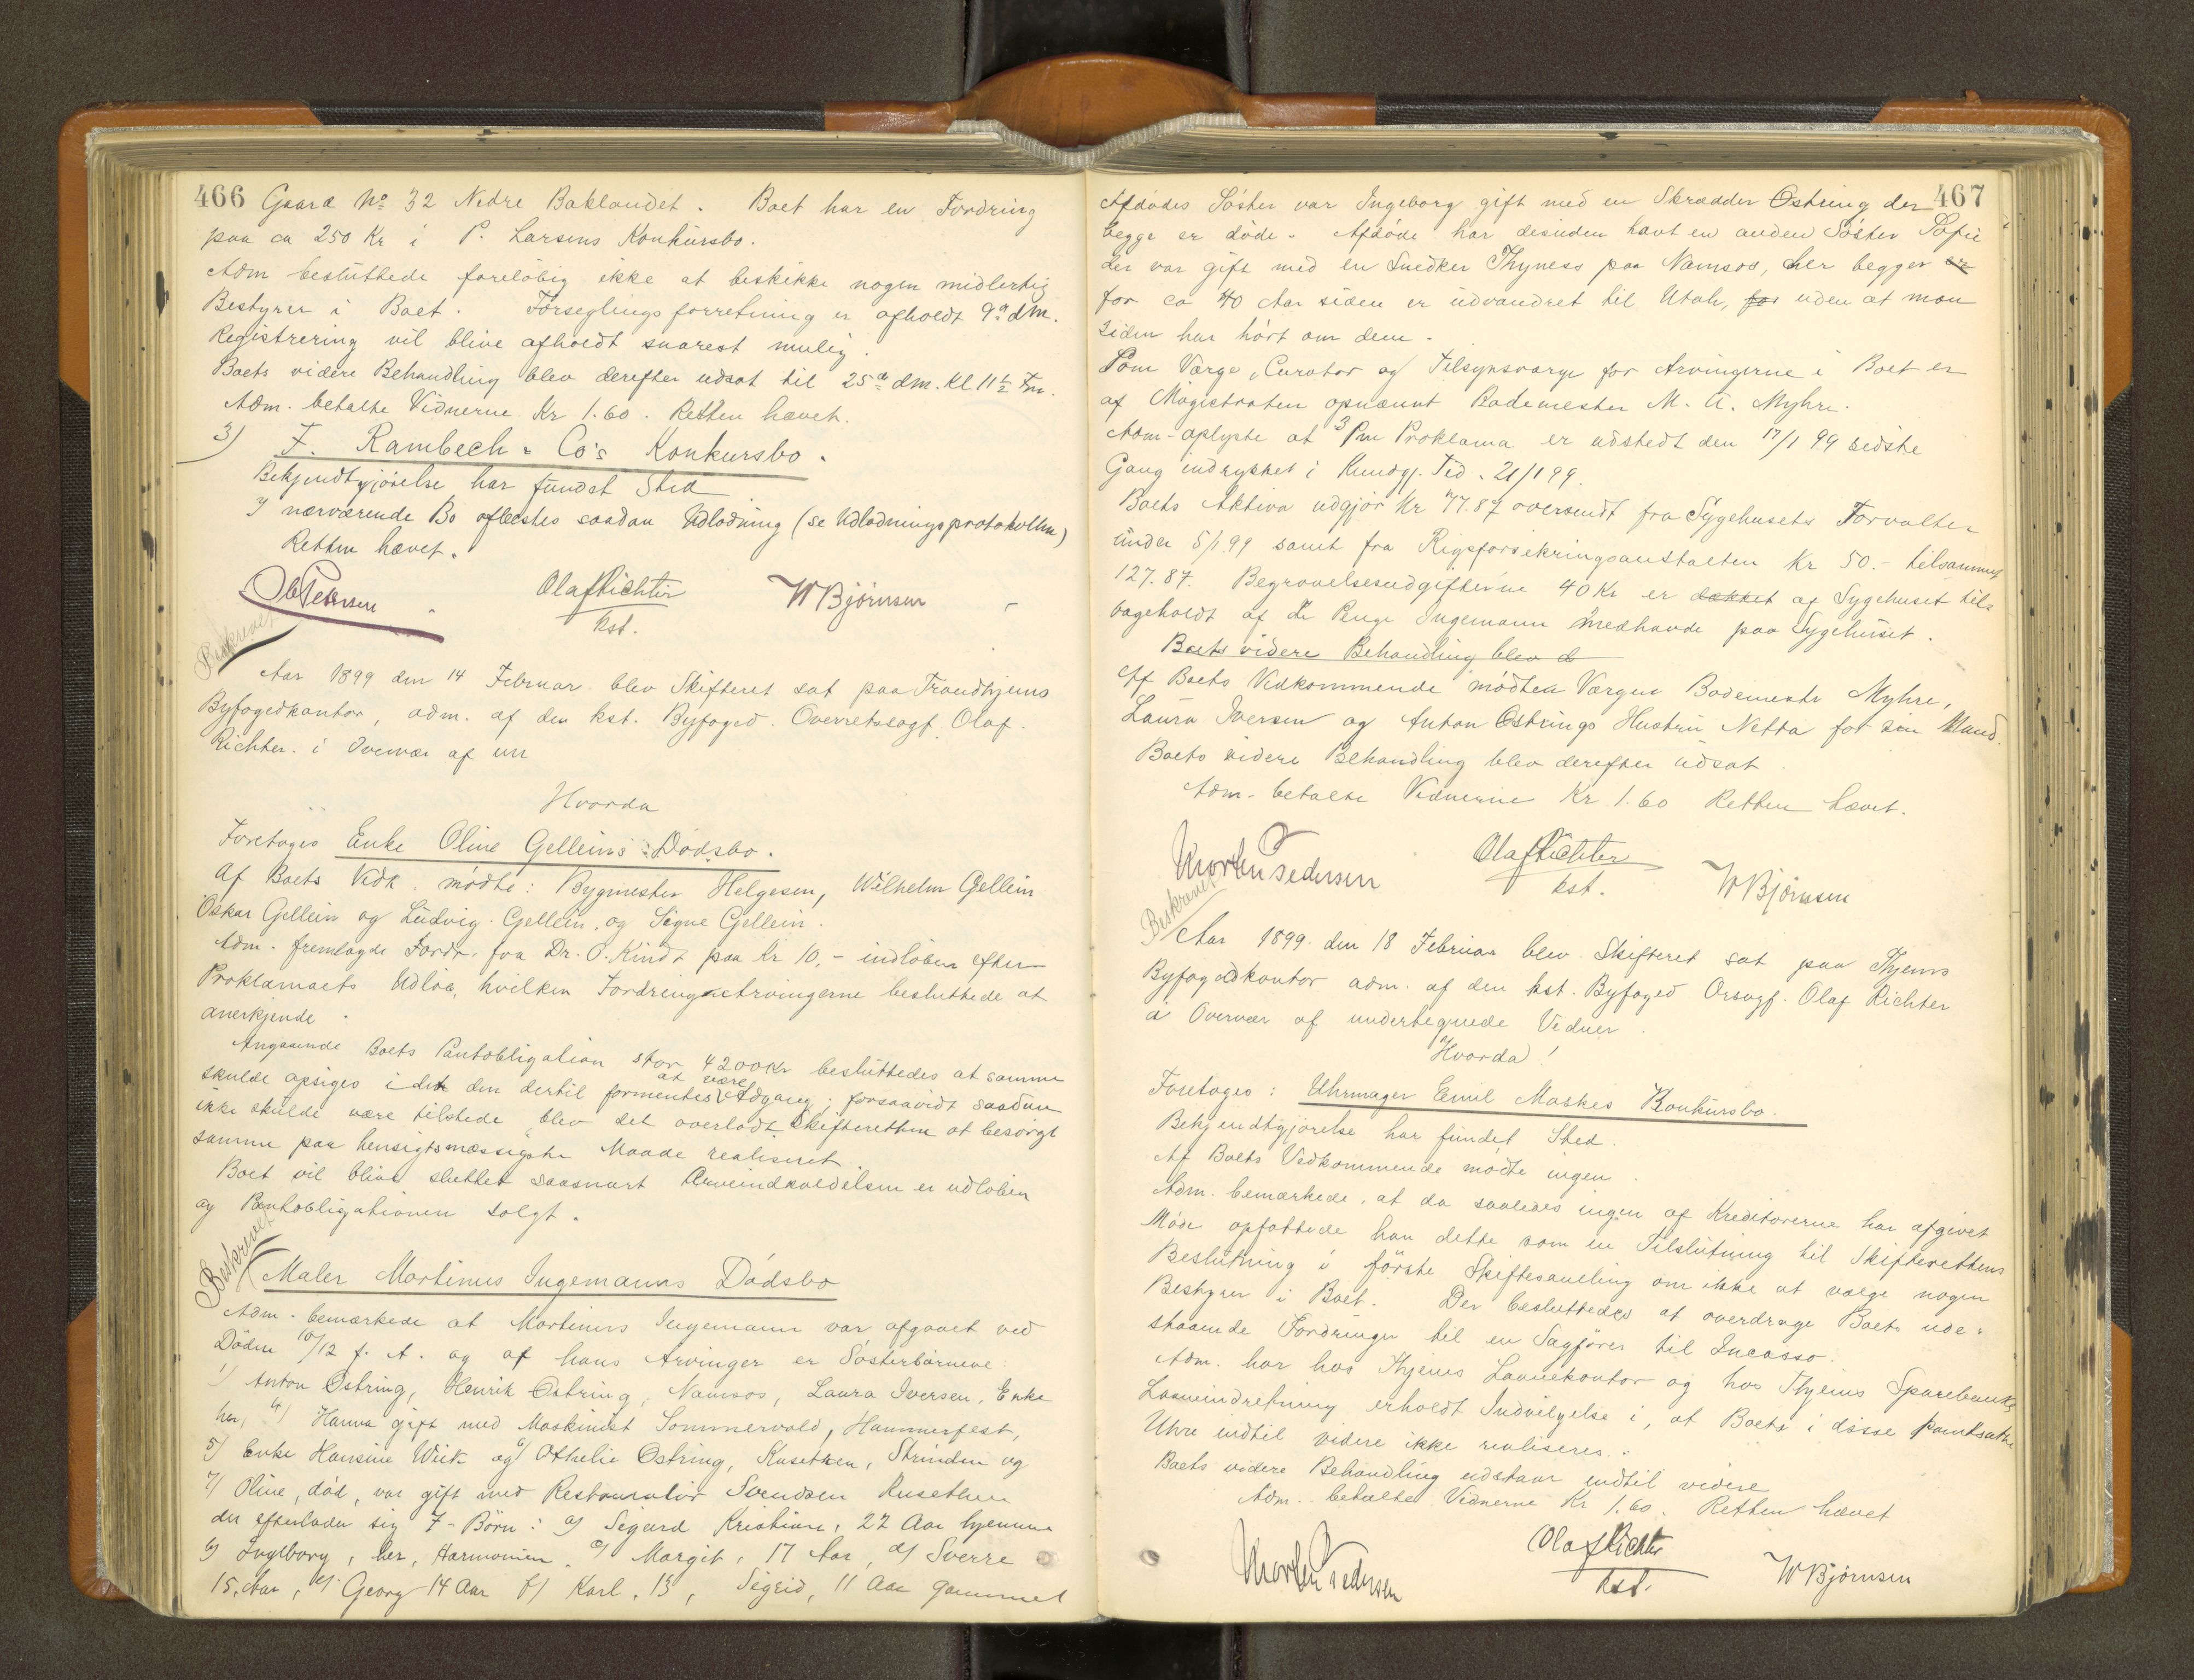 466 Gaard No 32 Nedre Baklandet. Boet har en Fordring
paa ca 250 Kr i P. Larsens Konkursbo.
Adm besluttede foreløbig ikke at beskikke nogen midlertig
Bestyrer i Boet. Forseglingsforretning er afholdt 9de dm.
Registrering vil blive afholdt snarest mulig.
Boets videre Behandling blev derefter udsat til 25de dm. Kl 11½ Fm.
Adm. betalte Vidnerne Kr 1.60. Retten hævet.
3) F. Rambech & Co's Konkursbo.
Bekjendtgjørelse har fundet Sted
I nærværende Bo aflæstes saadan Udlodning (se Udlodningsprotokollen)
Retten hævet.
Ol Petersen Olaf Richter W Bjørnsen
kst.
Beskrevet
Aar 1899 den 14 Februar blev Skifteret sat paa Trondhjems
Byfogedkontor, adm. af den kst. Byfoged. Overretssagf. Olaf
Richter. i Overvær af un
Hvorda
Foretoges Enke Oline Gelleins Dødsbo.
Af Boets Vedk. mødte: Bygmester Helgesen, Wilhelm Gellein
Oskar Gellein og Ludvig Gellein, og Signe Gellein.
Adm. fremlagde Fordr. fra Dr. O. Kindt paa kr 10,- indløben efter
Proklamaets Udløb, hvilken Fordring Arvingerne besluttede at
anerkjende.
Angaaende Boets Pantobligation stor 4200 Kr besluttedes at samme
skulde opsiges i det den dertil formentes at være Adgang; forsaavidt saadan
ikke skulde være tilstede blev det overladt Skifteretten at besørge
samme paa hensigtsmæssigste Maade realiseret.
Boet vil blive sluttet saasnart Arveindkaldelsen er udløben
og Pantobligationen solgt.
Beskrevet
Maler Martinus Ingemanns Dødsbo
Adm. bemærkede at Martinus Ingemann var afgaaet ved
Døden /12 f. A. og af hans Arvinger er Søsterbørnene:
1) Anton Østring, Henrik Østring, Namsos, Laura Iversen, Enke
her, 4) Hanna gift med Maskinist Sommervold, Hammerfest,
5) Enke Hansine Wiik og 6) Othelie Østring, Kusethen, Strinden og
7) Oline, død, var gift med Restauratør Svendsen Rusethen
der efterlader sig 7 Børn: a) Sigurd Kristian, 22 Aar hjemme
b) Ingeborg, her, Harmonien, c) Margit, 17 Aar, d) Sverre
15. Aar, e) Georg 14 Aar f) Karl, 13, Sigrid, 11 Aar gammel
467
Afdødes Søster var Ingeborg gift med en Skrædder Østring der
begge er døde. Afdøde har desuden havt en anden Søster Sofie
der var gift med en Snedker Thyness paa Namsos, her begge er
for ca 40 Aar siden er udvandret til Utah, for uden at man
siden har hørt om dem.
Som Værge, Curator og Tilsynsværge for Arvingerne i Boet er
af Magistraten opnævnt Bademester M. A. Myhre.
Adm. oplyste at 3 Pm Proklama er udstedt den 17/1 99 sidste
Gang indrykket i Kundgj. Tid. 21/1 99.
Boets Aktiva udgjør Kr 77.87 oversendt fra Sygehusets Forvalter
under 5/1 99 samt fra Rigsforsikringsanstalten Kr 50.- tilsammen
127.87. Begravelsesudgifterne 40 Kr er dækket af Sygehuset til-
bageholdt af de Penge Ingemann medhavde paa Sygehuset.
Boets videre Behandling blev d
Af Boets Vedkommende mødte Værgen Bademester Myhre,
Laura Iversen og Anton Østrings Hustru Netta for sin Mand.
Boets videre Behandling blev derefter udsat.
Adm. betalte Vidnerne Kr 1.60 Retten hævet.
Morten Pedersen Olaf Richter W Bjørnsen
kst.
Beskrevet
Aar 1899. den 18 Februar blev Skifteret sat paa Thjems
Byfogedkontor adm. af den kst. Byfoged Orsagf. Olaf Richter
i Overvær af undertegnede Vidner.
Hvorda!
Foretoges: Uhrmager Emil Moskes Konkursbo.
Bekjendtgjørelse har fundet Sted.
Af Boets Vedkommende mødte ingen.
Adm. bemærkede, at da saaledes ingen af Kreditorerne har afgivet
Møde opfattede han dette som en Tilslutning til Skifterettens
Beslutning i første Skiftesamling om ikke at vælge nogen
Bestyrer i Boet. Der besluttedes at overdrage Boets ude-
staaende Fordringer til en Sagfører til Incasso.
Adm. har hos Thjems Laanekontor og hos Thjems Sparebanks
Laaneindretning erholdt Indvilgelse i, at Boets i disse pantsatte
Uhre indtil videre ikke realiseres.
Boets videre Behandling udstaar indtil videre
Adm. betalte Vidnerne Kr 1.60. Retten hævet
Morten Pedersen Olaf Richter W Bjørnsen
kst.